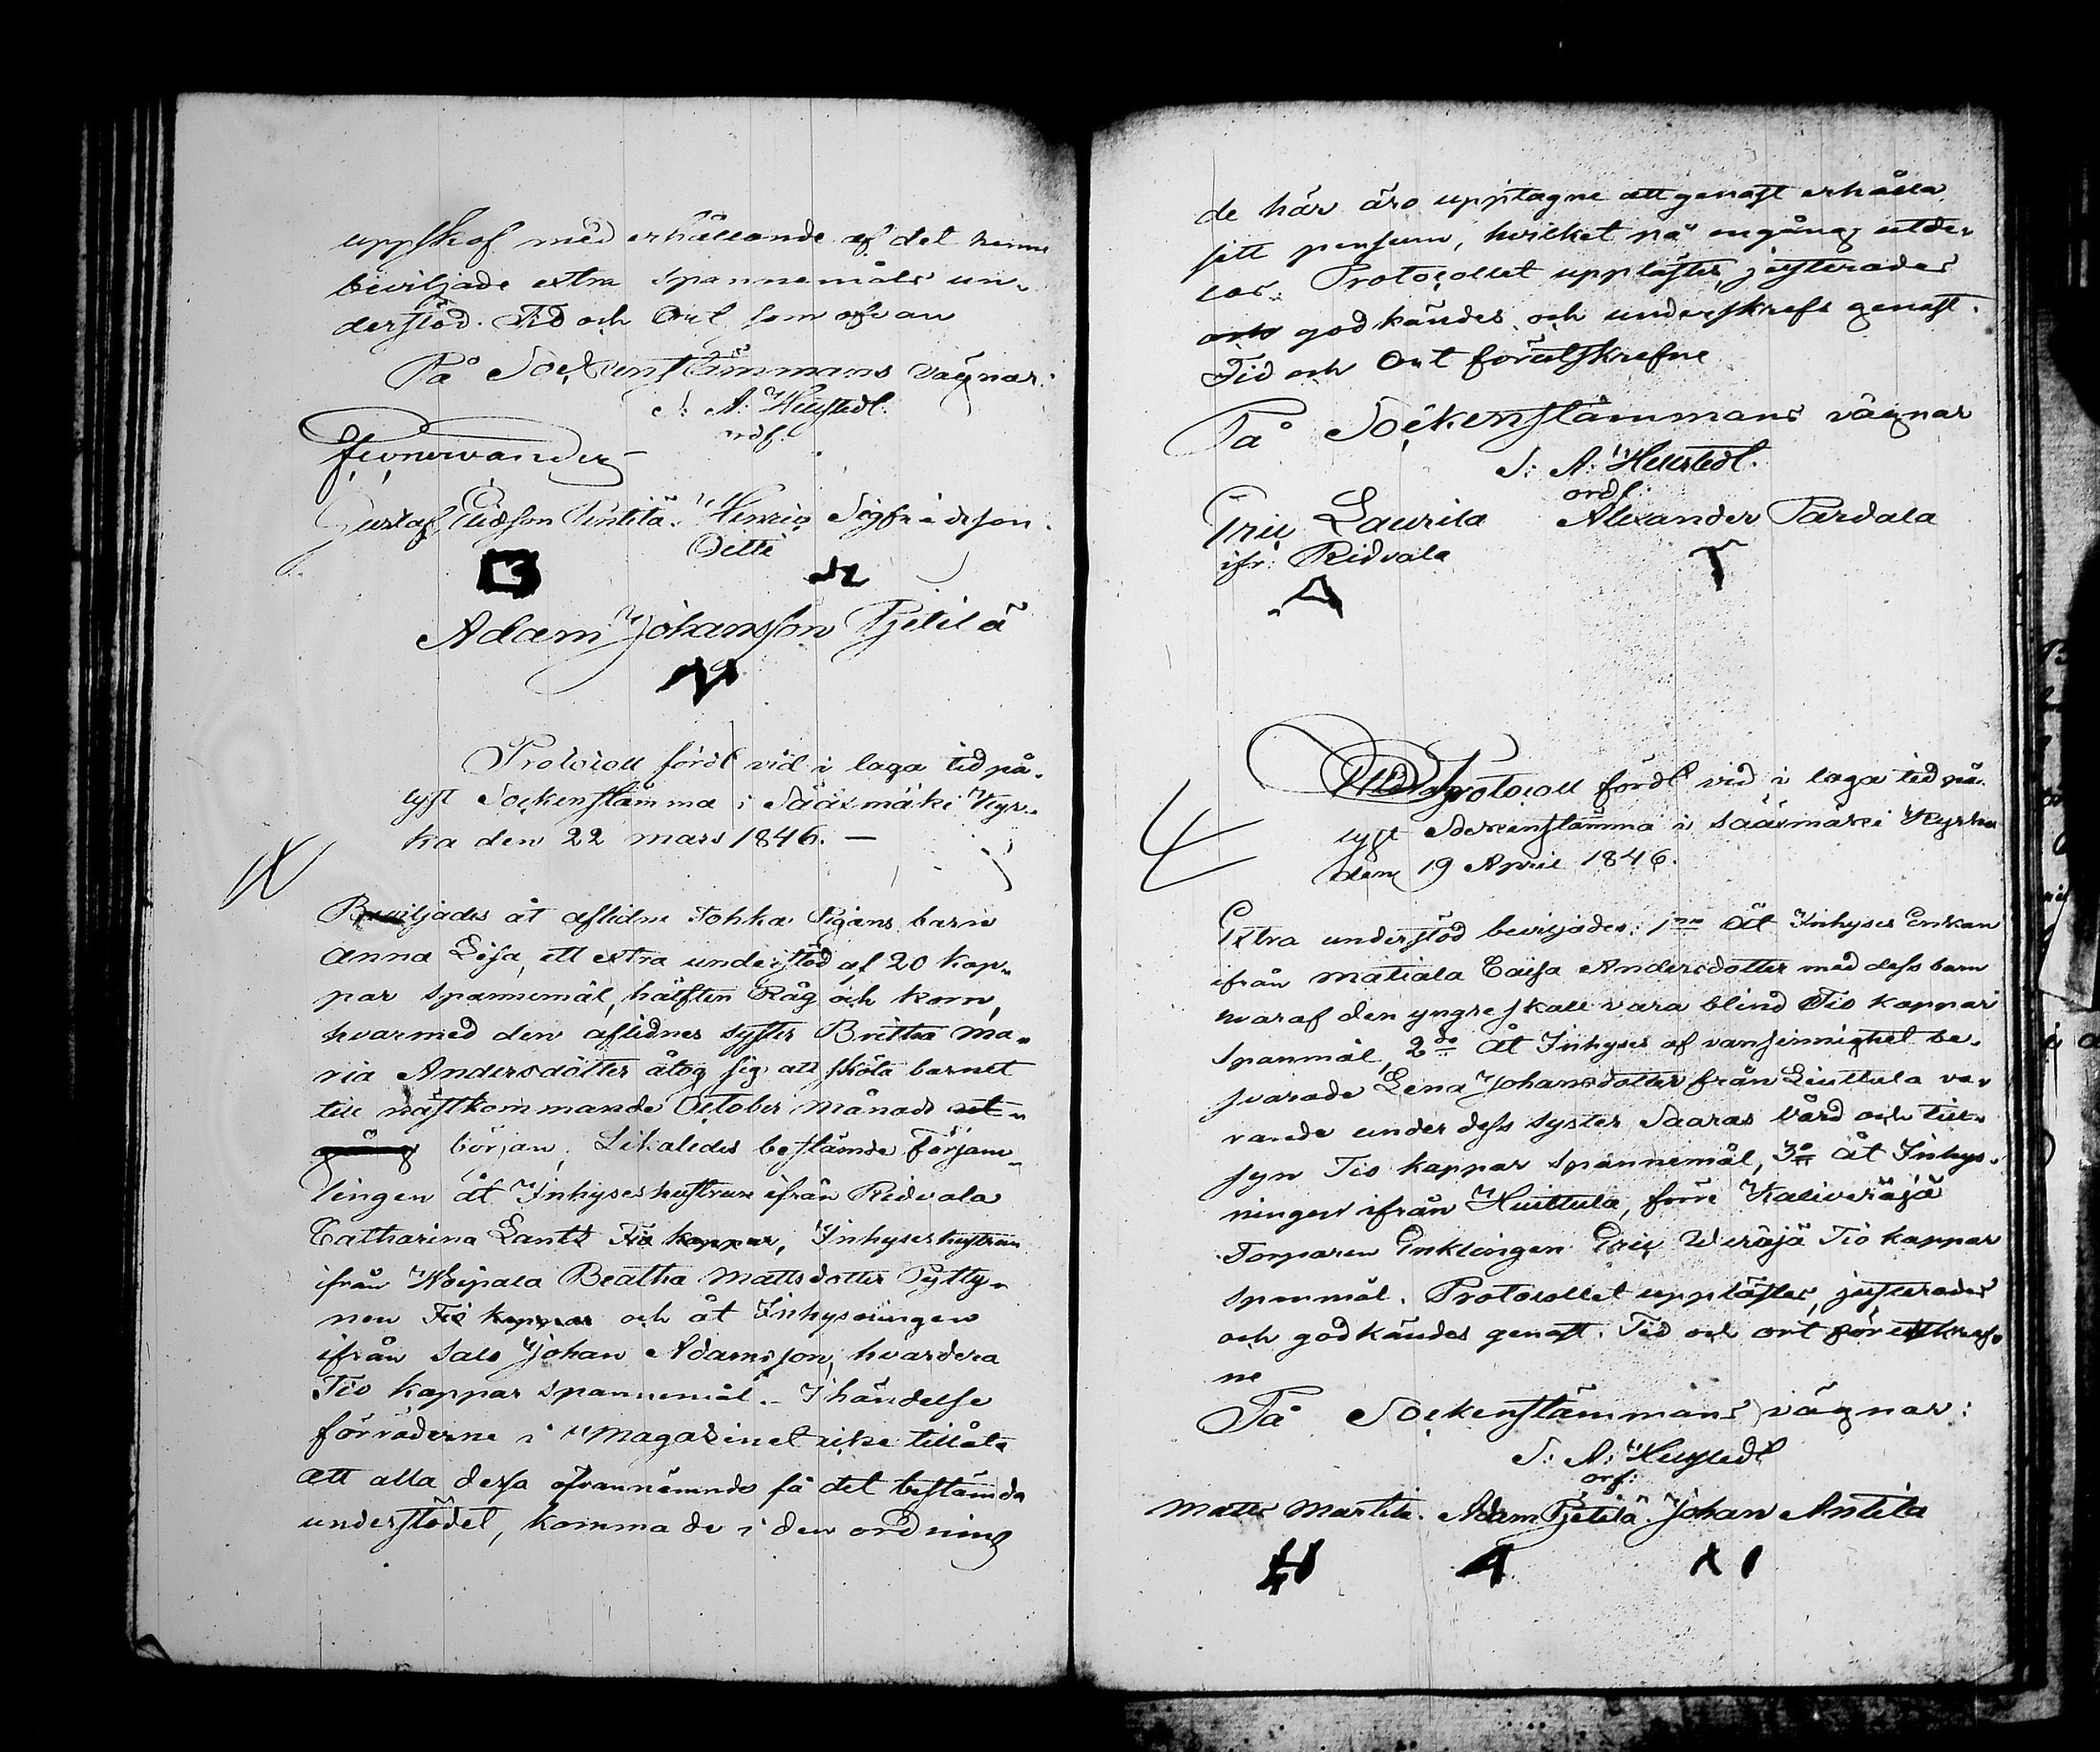 uppskof med erhållande af det henne
beviljade extra spannemåls un-
derstöd. Tid och Ort som ofvan
På Sockenstämmans vägnar:
J: A: Hellstedt.
ordf.
Gustaf Ericsson Anttila. Henric Sigfridsson.
Ollti
Adam Johansson Pjetilä
Protocoll fördt vid i laga tid på-
lyst Sockenstämma i Sääxmäki Kyr-
ka den 22 mars 1846. —
Beviljades åt aflidne Tohka Pigans barn
Anna Lisa, ett extra understöd af 20 kap-
par spannemål, hälften Råg och korn,
hvarmed den aflidnes syster Britha Ma-
ria Andersdotter åtog sig att sköta barnet
till nästkommande October månads ut-
gång början. Likaledes bestämde Försam-
lingen åt Inhyseshustrun ifrån Ridvala
Catharina Lantz Tio kappar, Inhyseshustrun
ifrån Woipala Beatha Mattsdotter Pytty-
nen Tio kappar och åt Inhysningen
ifrån Salo Johan Adamsson, hvardera
Tio kappar spannemål. – I händelse
förråderne i Magasinet icke tillåta
att alla dessa ofvannämnde få det bestämda
understödet, komma de i den ordning
de här äro upptagne att genast erhålla
sitt pensum, hvilket på engång utde-
las. Protocollet upplästes, justerades
och godkändes och underskrefs genast.
Tid och Ort förutskrefne
På Sockenstämmans vägnar
J: A: Hellstedt.
ordf:
Eric Laurila Alexander Pardala
ifr: Ridvala
Protocoll fördt vid i laga tid på-
lyst Sockenstämma i Sääxmäki Kyrka
den 19 April 1846.
Extra understöd beviljades: 1mo åt Inhyses Enkan
ifrån Matiala Caisa Andersdotter med dess barn
hvaraf den yngre skall vara blind Tio kappar
Spanmål, 2do åt Inhyses af vansinnighet be-
svarade Lena Johansdotter från Liuttula va-
rande under dess syster Saaras vård och till-
syn Tio kappar spannemål, 3o åt Inhys-
ningen ifrån Huittula, förre Kaliveräjä
Torparen Enklingen Eric Weräjä Tio kappar
spanmål. Protocollet upplästes, justerades
och godkändes genast. Tid och ort förutskref-
ne
På Sockenstämmans vägnar:
J: A: Hellstedt
orf:
Matts Marttila. Adam Pjetilä. Johan Antila